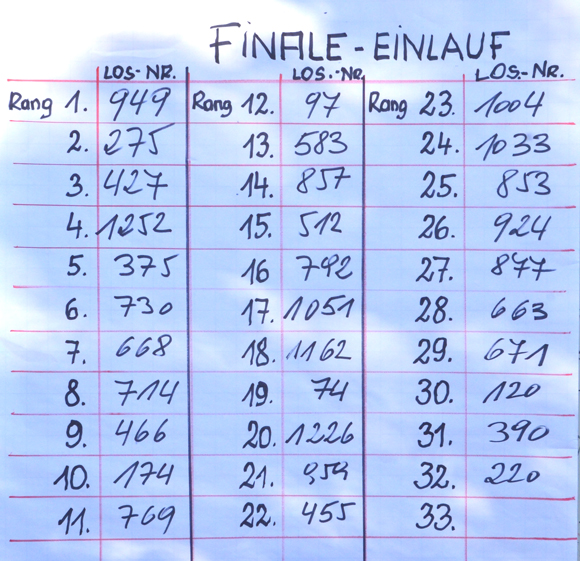 FINALE - EINLAUF
LOS-NR. LOS.-NR. LOS.-NR.
Rang 1. 949 Rang 12. 97 Rang 23. 1004
2. 275 13. 583 24. 1033
3. 427 14. 857 25. 853
4. 1252 15. 512 26. 924
5. 375 16 792 27. 877
6. 730 17. 1051 28. 663
7. 668 18. 1162 29. 671
8. 714 19. 74 30. 120
9. 466 20. 1226 31. 390
10. 174 21. 32. 220
11. 769 22. 455 33.